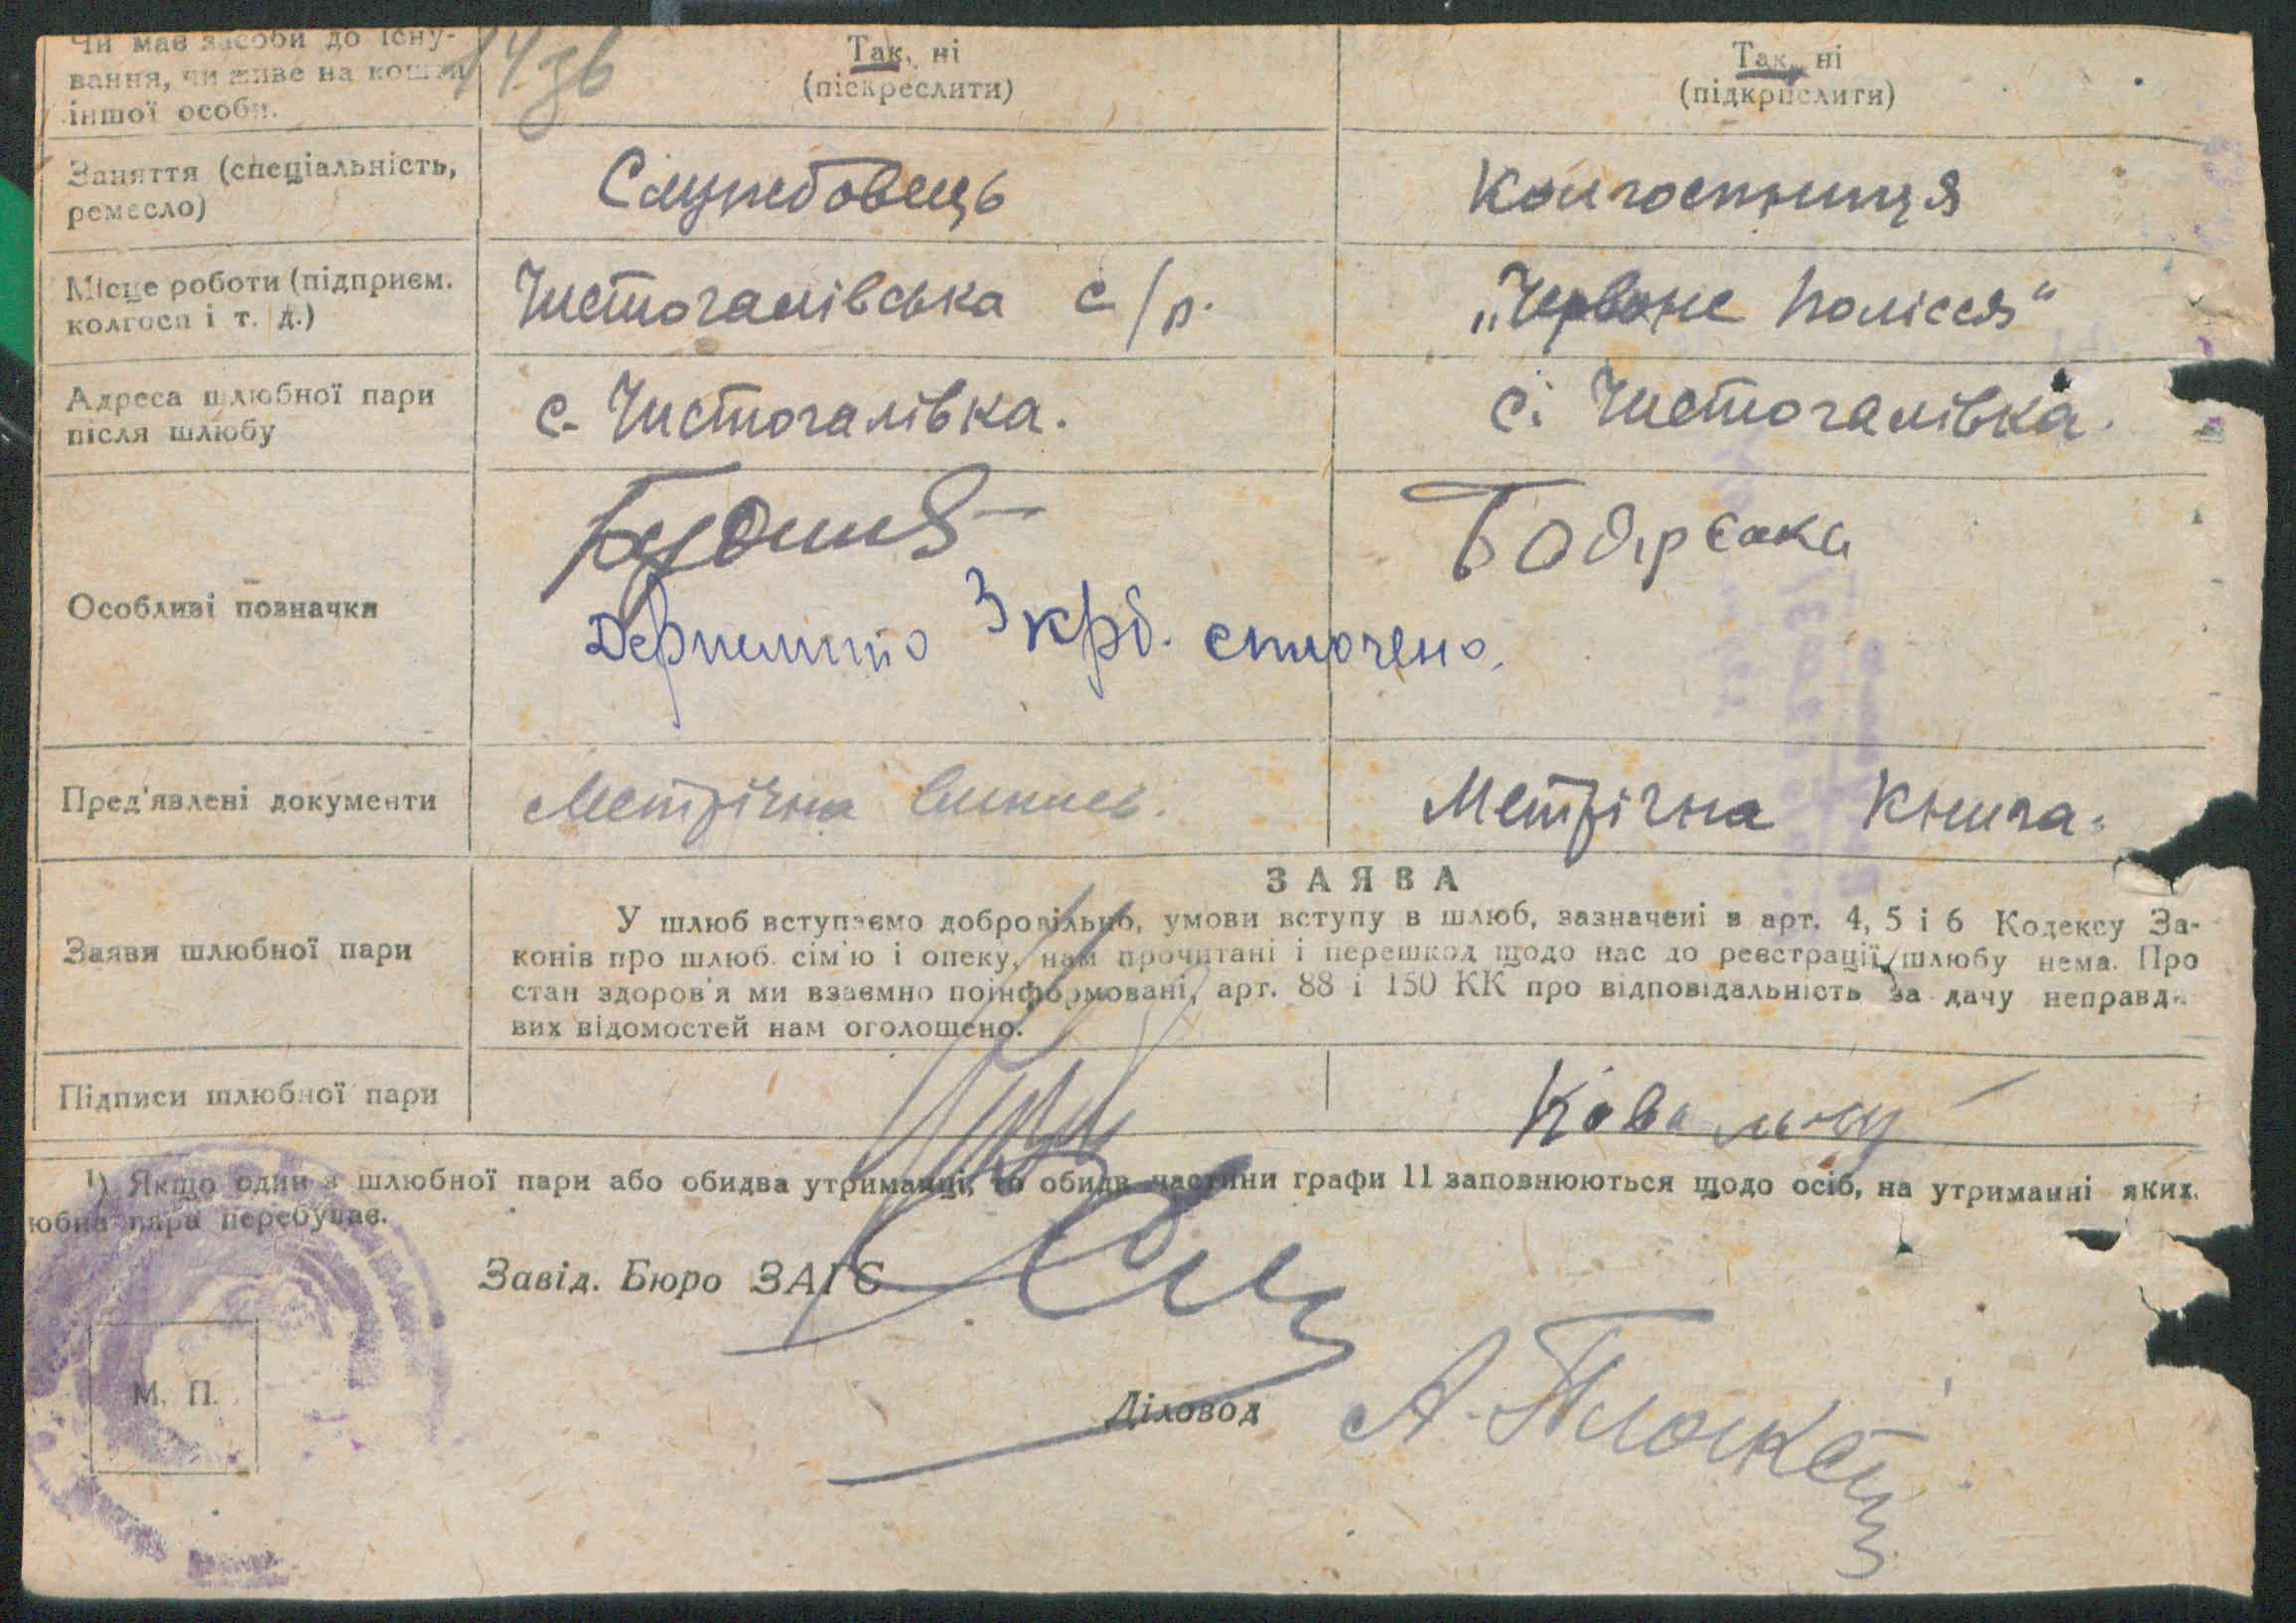 Чи має засоби до існу-
вання, чи живе на кошти
іншої особи.
14 зв
Так, ні
(піскреслити)
Так, ні
(підкрислити)
Заняття (спеціальність,
ремесло)
Службовець
Колгоспниця
Місце роботи (підприєм.
колгосп і т. д.)
Чистогалівська с/р.
„Червоне Полісся"
Адреса шлюбної пари
після шлюбу
с. Чистогалівка.
с. Чистогалівка.
Особливі позначки
3 крб. сплочено.
Пред'явлені документи
Метрічна випись.
Метрічна Книга.
ЗАЯВА
Заяви шлюбної пари
У шлюб вступаємо добровільно, умови вступу в шлюб, зазначені в арт. 4, 5 і 6 Кодексу За-
конів про шлюб. сім'ю і опеку, нам прочитані і перешкод щодо нас до реєстрації шлюбу нема. Про
стан здоров'я ми взаємно поінформовані, арт. 88 і 150 КК про відповідальність за дачу неправди
вих відомостей нам оголошено.
Підписи шлюбної пари
¹) Якщо один з шлюбної пари або обидва утриманці, то обидві частини графи 11 заповнюються щодо осіб, на утриманні яких
юбна пара перебуває.
Завід. Бюро ЗАГС
М. П.
Діловод